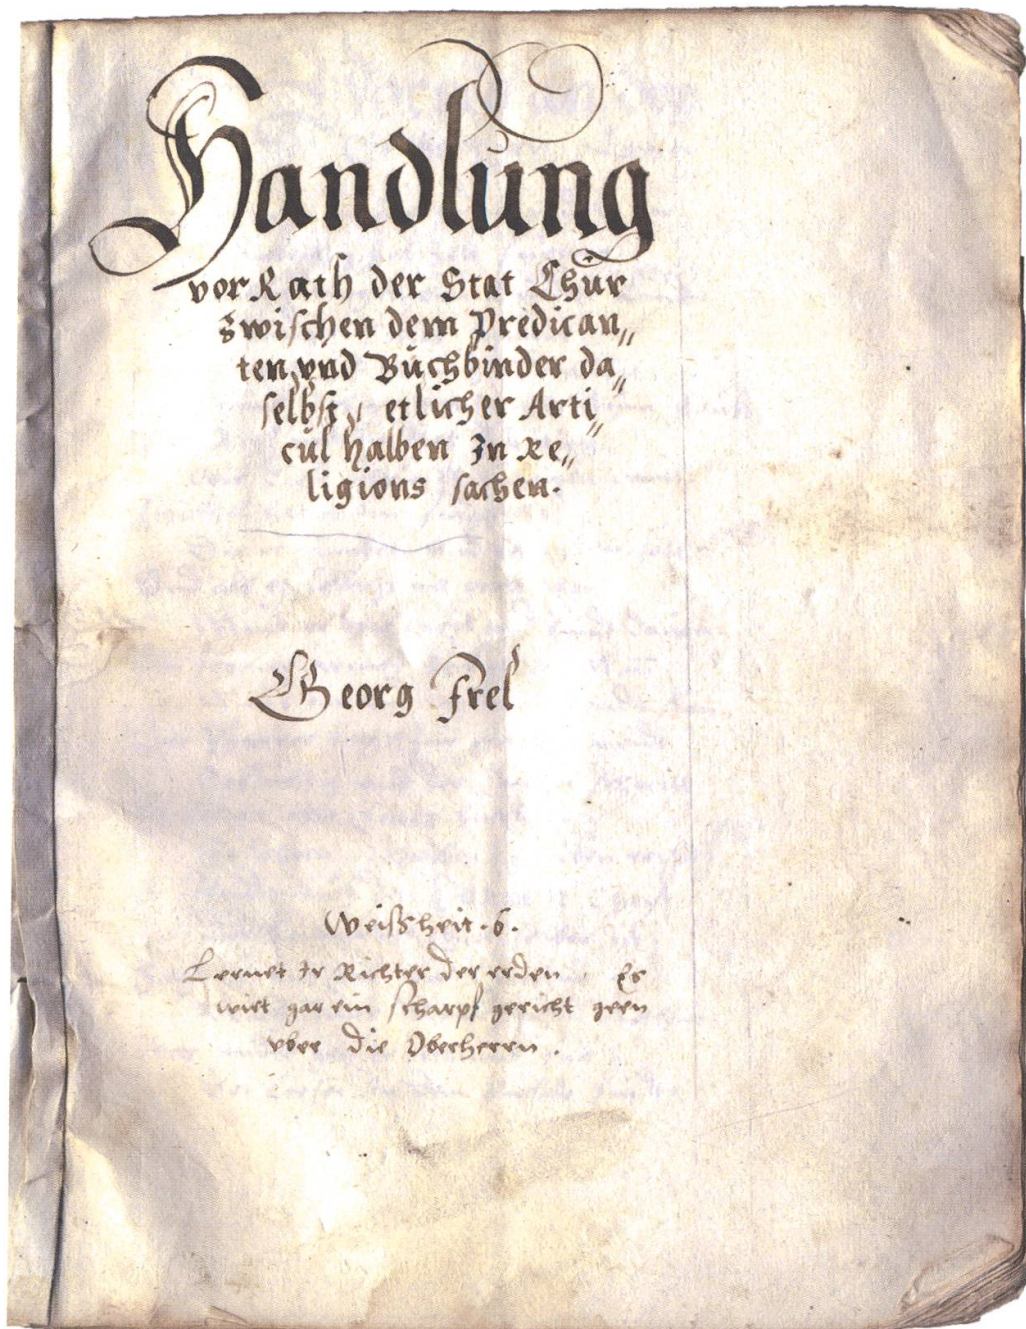 Handlung
vor Rath der Stat Chůr
Zwischen dem Predican„
ten, vnd Bůchbinder da„
selbst, etlicher Arti„
cůl halben In Re„
ligions sachen.
Georg Frel
Weißheit .6.
Lernet Ir Richter der erden Es
wirt gar ein scharpf gericht geen
vber die Oberherrn.